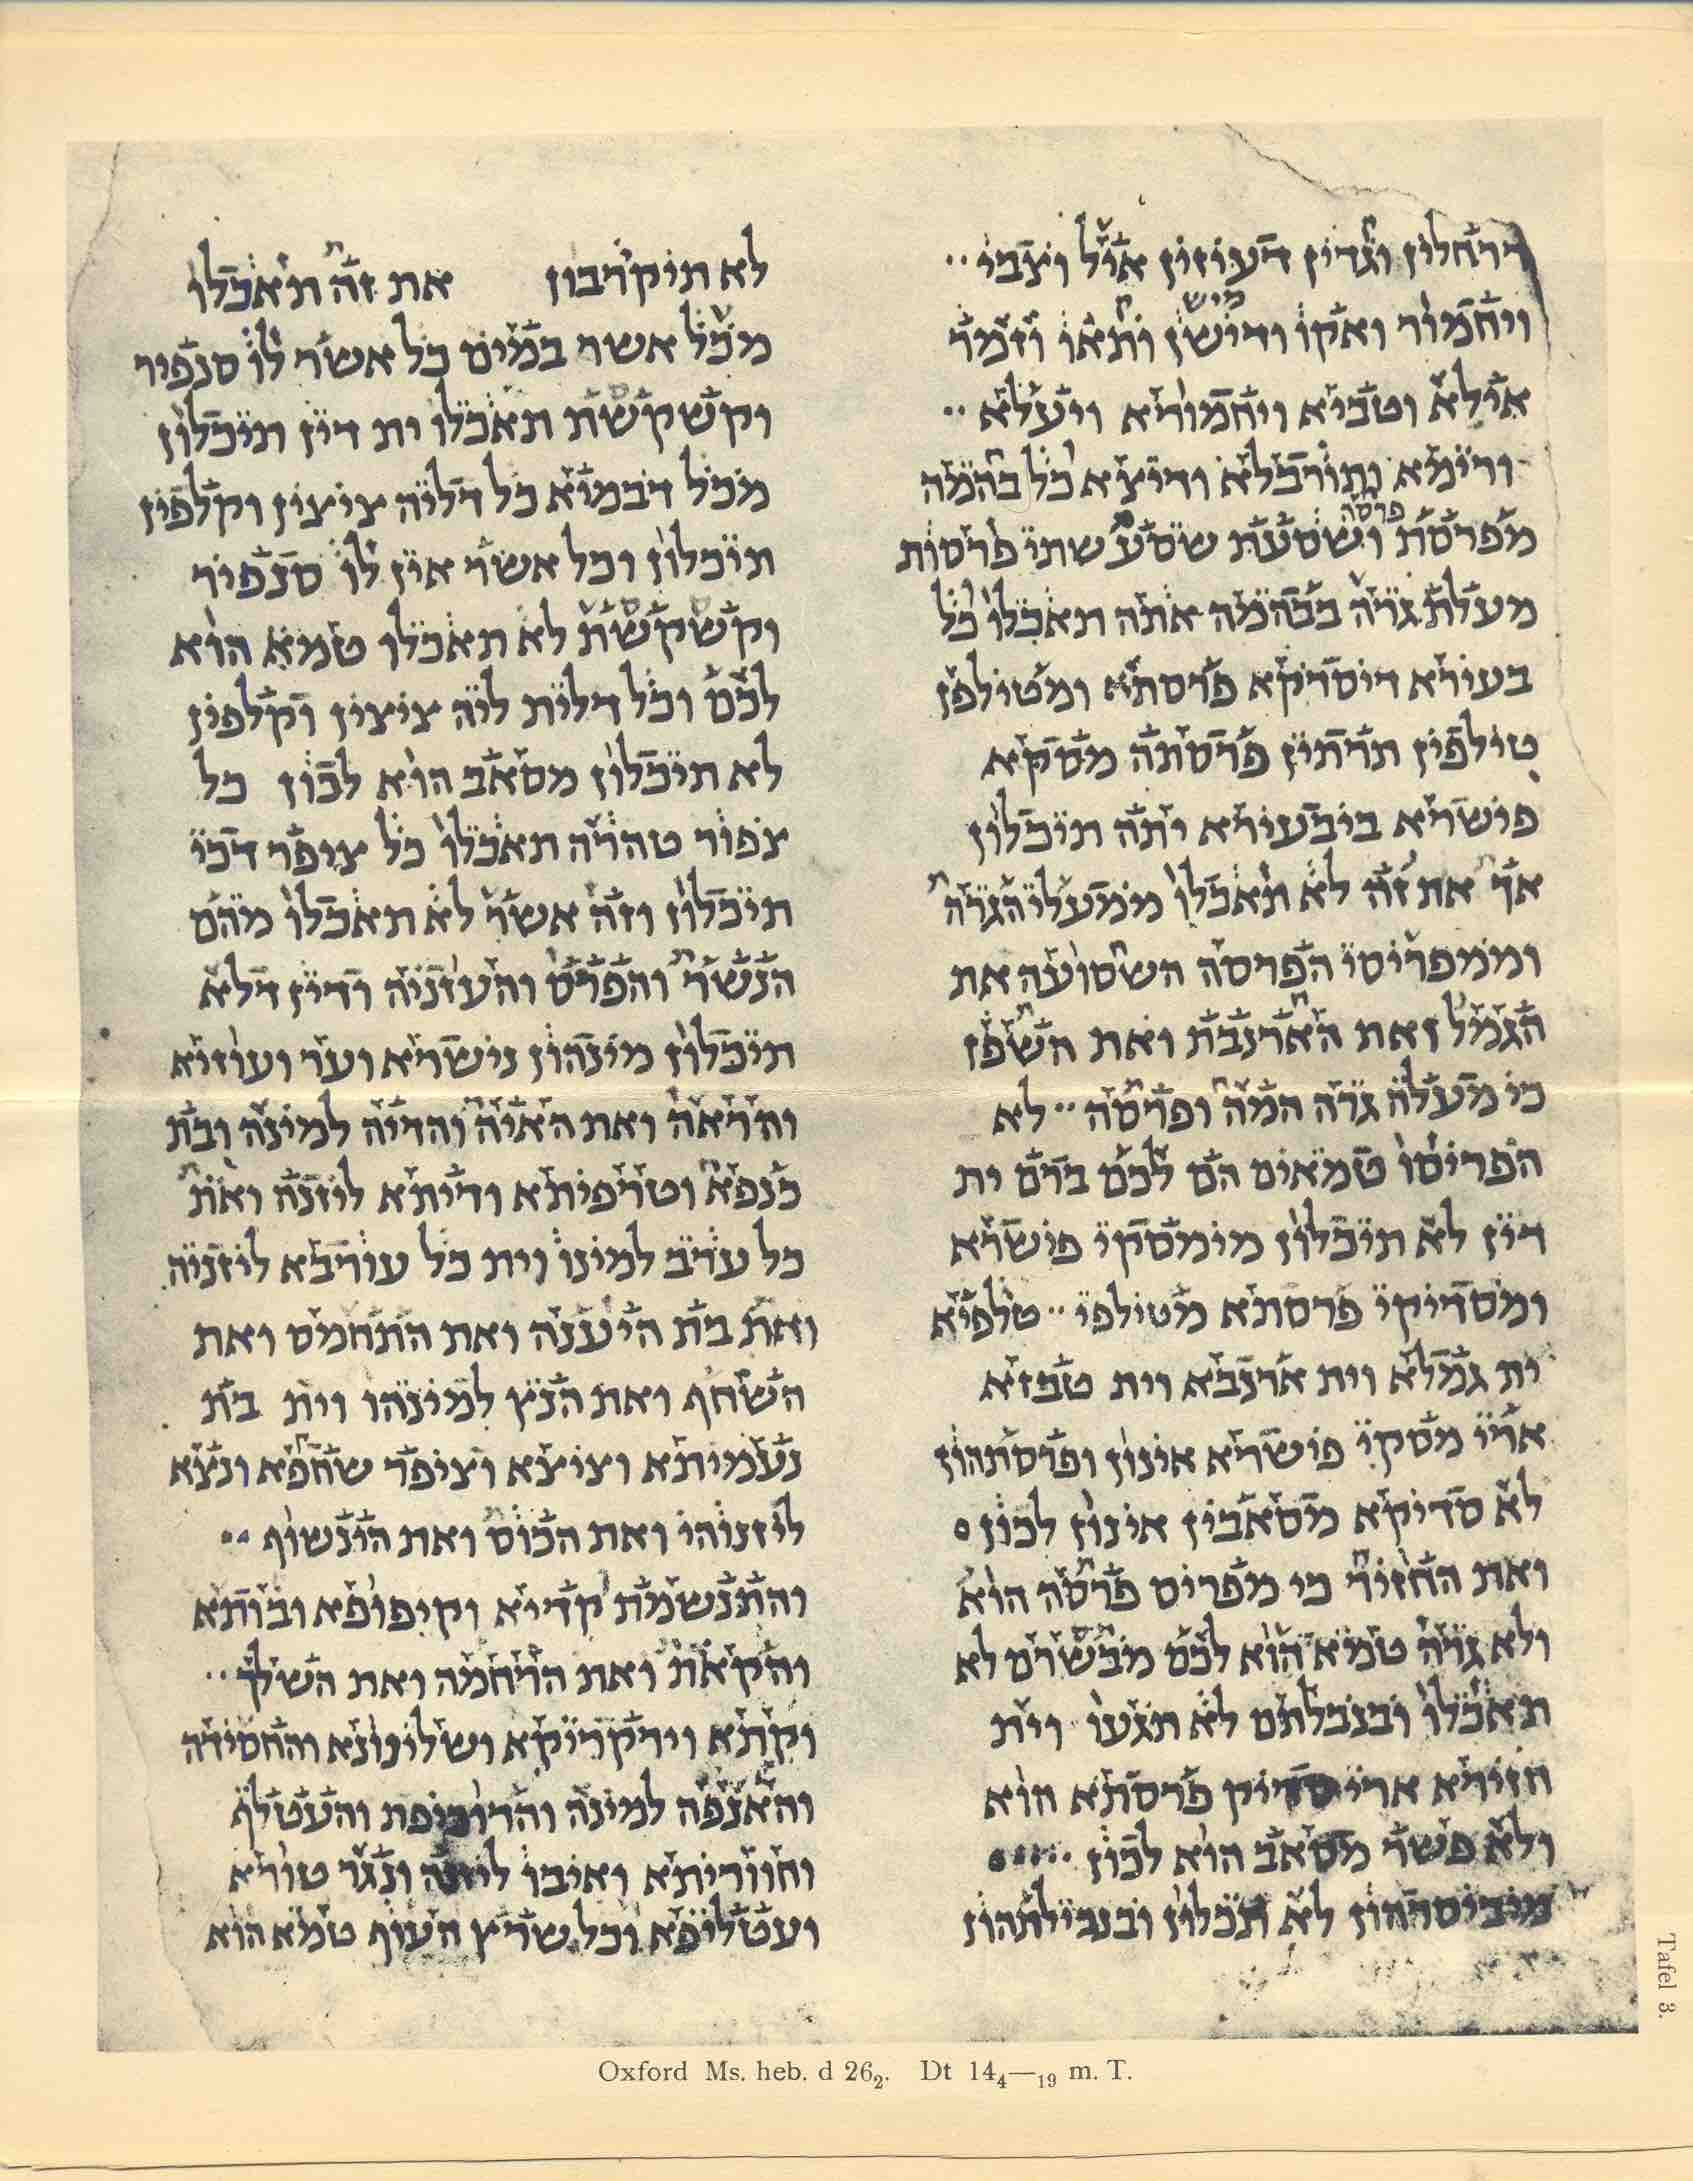 דרחלון וגדין דעוזין איל וצבי
ויחמור ואקו ודישן ותאו וזמר
מיש
אילא וטביא ויחמורא ויעלא
ורימא ותורבלא ודיצא כל בהמה
מפרסת ושסעת שסע שתי פרסות
פרסה
מעלת גרה בבהמה אתה תאכלו כל
בעירא דיסדיקא פרסתא ומטילפן
טילפין תרתין פרסתה מסקא
פישרא ביבעירא יתה תיכלון
אך את זה לא תאכלו ממעלי הגרה
וממפריסי הפרסה השסועה את
הגמל ואת הארנבת ואת השפן
כי מעלה גרה המה ופרסה לא
הפריסו טמאים הם לכם ברם ית
דין לא תיכלון מימסקי פישרא
ומסדיקי פרסתא מטילפי טלפיא
ית גמלא וית ארנבא וית טבזא
ארי מסקי פישרא אינון ופרסתהון
לא סדיקא מסאבין אינון לכון
ואת החזיר כי מפריס פרסה הוא
ולא גרה טמא הוא לכם מבשרם לא
תאכלו ובנבלתם לא תגעו וית
חזירא ארי סדיק פרסתא הוא
ולא פשר מסאב הוא לכון
מיביסרהון לא תכלון ובנבילתהון
לא תיקרבון את זה תאכלו
מכל אשר במים כל אשר לו סנפיר
וקשקשת תאכלו ית דין תיכלון
מכל דבמיא כל דליה ציצין וקלפין
תיכלון וכל אשר אין לו סנפיר
וקשקשת לא תאכלו טמא הוא
לכם וכל דלית ליה ציצין וקלפין
לא תיכלון מסאב הוא לכון כל
צפור טהרה תאכלו כל ציפר דכי
תיכלון וזה אשר לא תאכלו מהם
הנשר והפרס והעזניה ודין דלא
תיכלון מינהון נישרא וער ועוזיא
והראה ואת האיה והדיה למינה ובת
כנפא וטרפיתא ודיתא לזינה ואת
כל ערב למינו וית כל עורבא לזיניה
ואת בת היענה ואת התחמס ואת
השחף ואת הנץ למינהו וית בת
נעמיתא וציצא וציפר שחפא ונצא
ליזנוהי ואת הכוס ואת הינשוף
והתנשמת קדיא וקיפופא ובותא
והקאת ואת הרחמה ואת השלך
וקתא וירקריקא ושלינונא והחסידה
והאנפה למינה והדוכיפת והעטלף
וחווריתא ואיבו ליזנה ונגר טורא
ועטליפא וכל שרץ העוף טמא הוא
Oxford Ms. heb. d 26₂. Dt 14₄—₁₉ m. T.
Tafel 3.